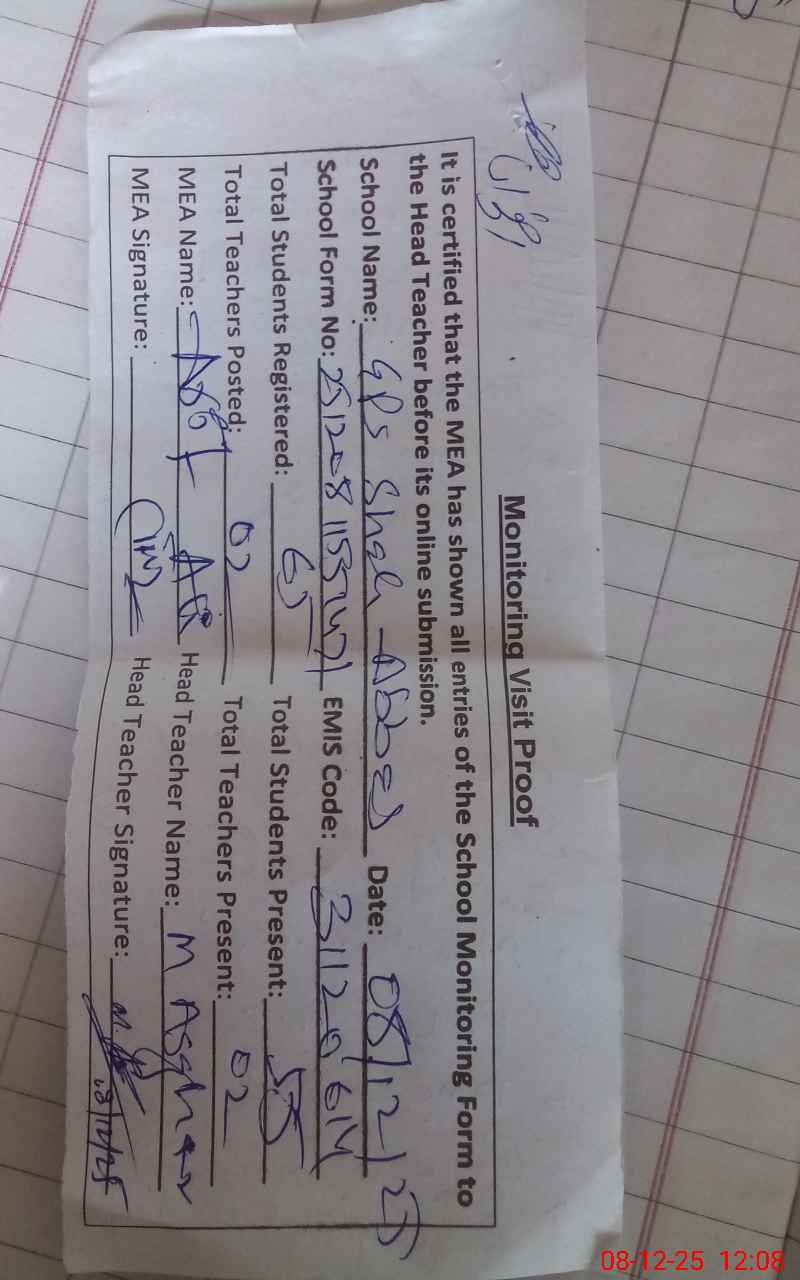 Monitoring Visit Proof
It is certified that the MEA has shown all entries of the School Monitoring Form to
the Head Teacher before its online submission.
School Name: GPS Shah Abbas Date: 08/12/25
School Form No: EMIS Code: 31120614
Total Students Registered: 65 Total Students Present: 55
Total Teachers Posted: 02 Total Teachers Present: 02
MEA Name: Head Teacher Name: M Asghar
MEA Signature: Head Teacher Signature:
08-12-25 12:08